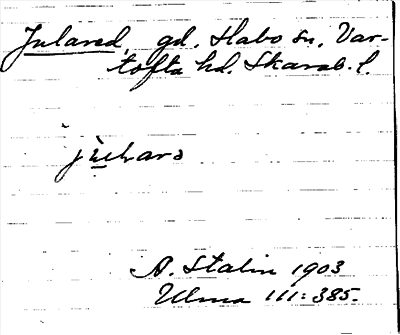 Julared, gd. Habo sn, Var-
tofta hd. Skarab. l.
A. Stalin 1903
Ulma III: 385.